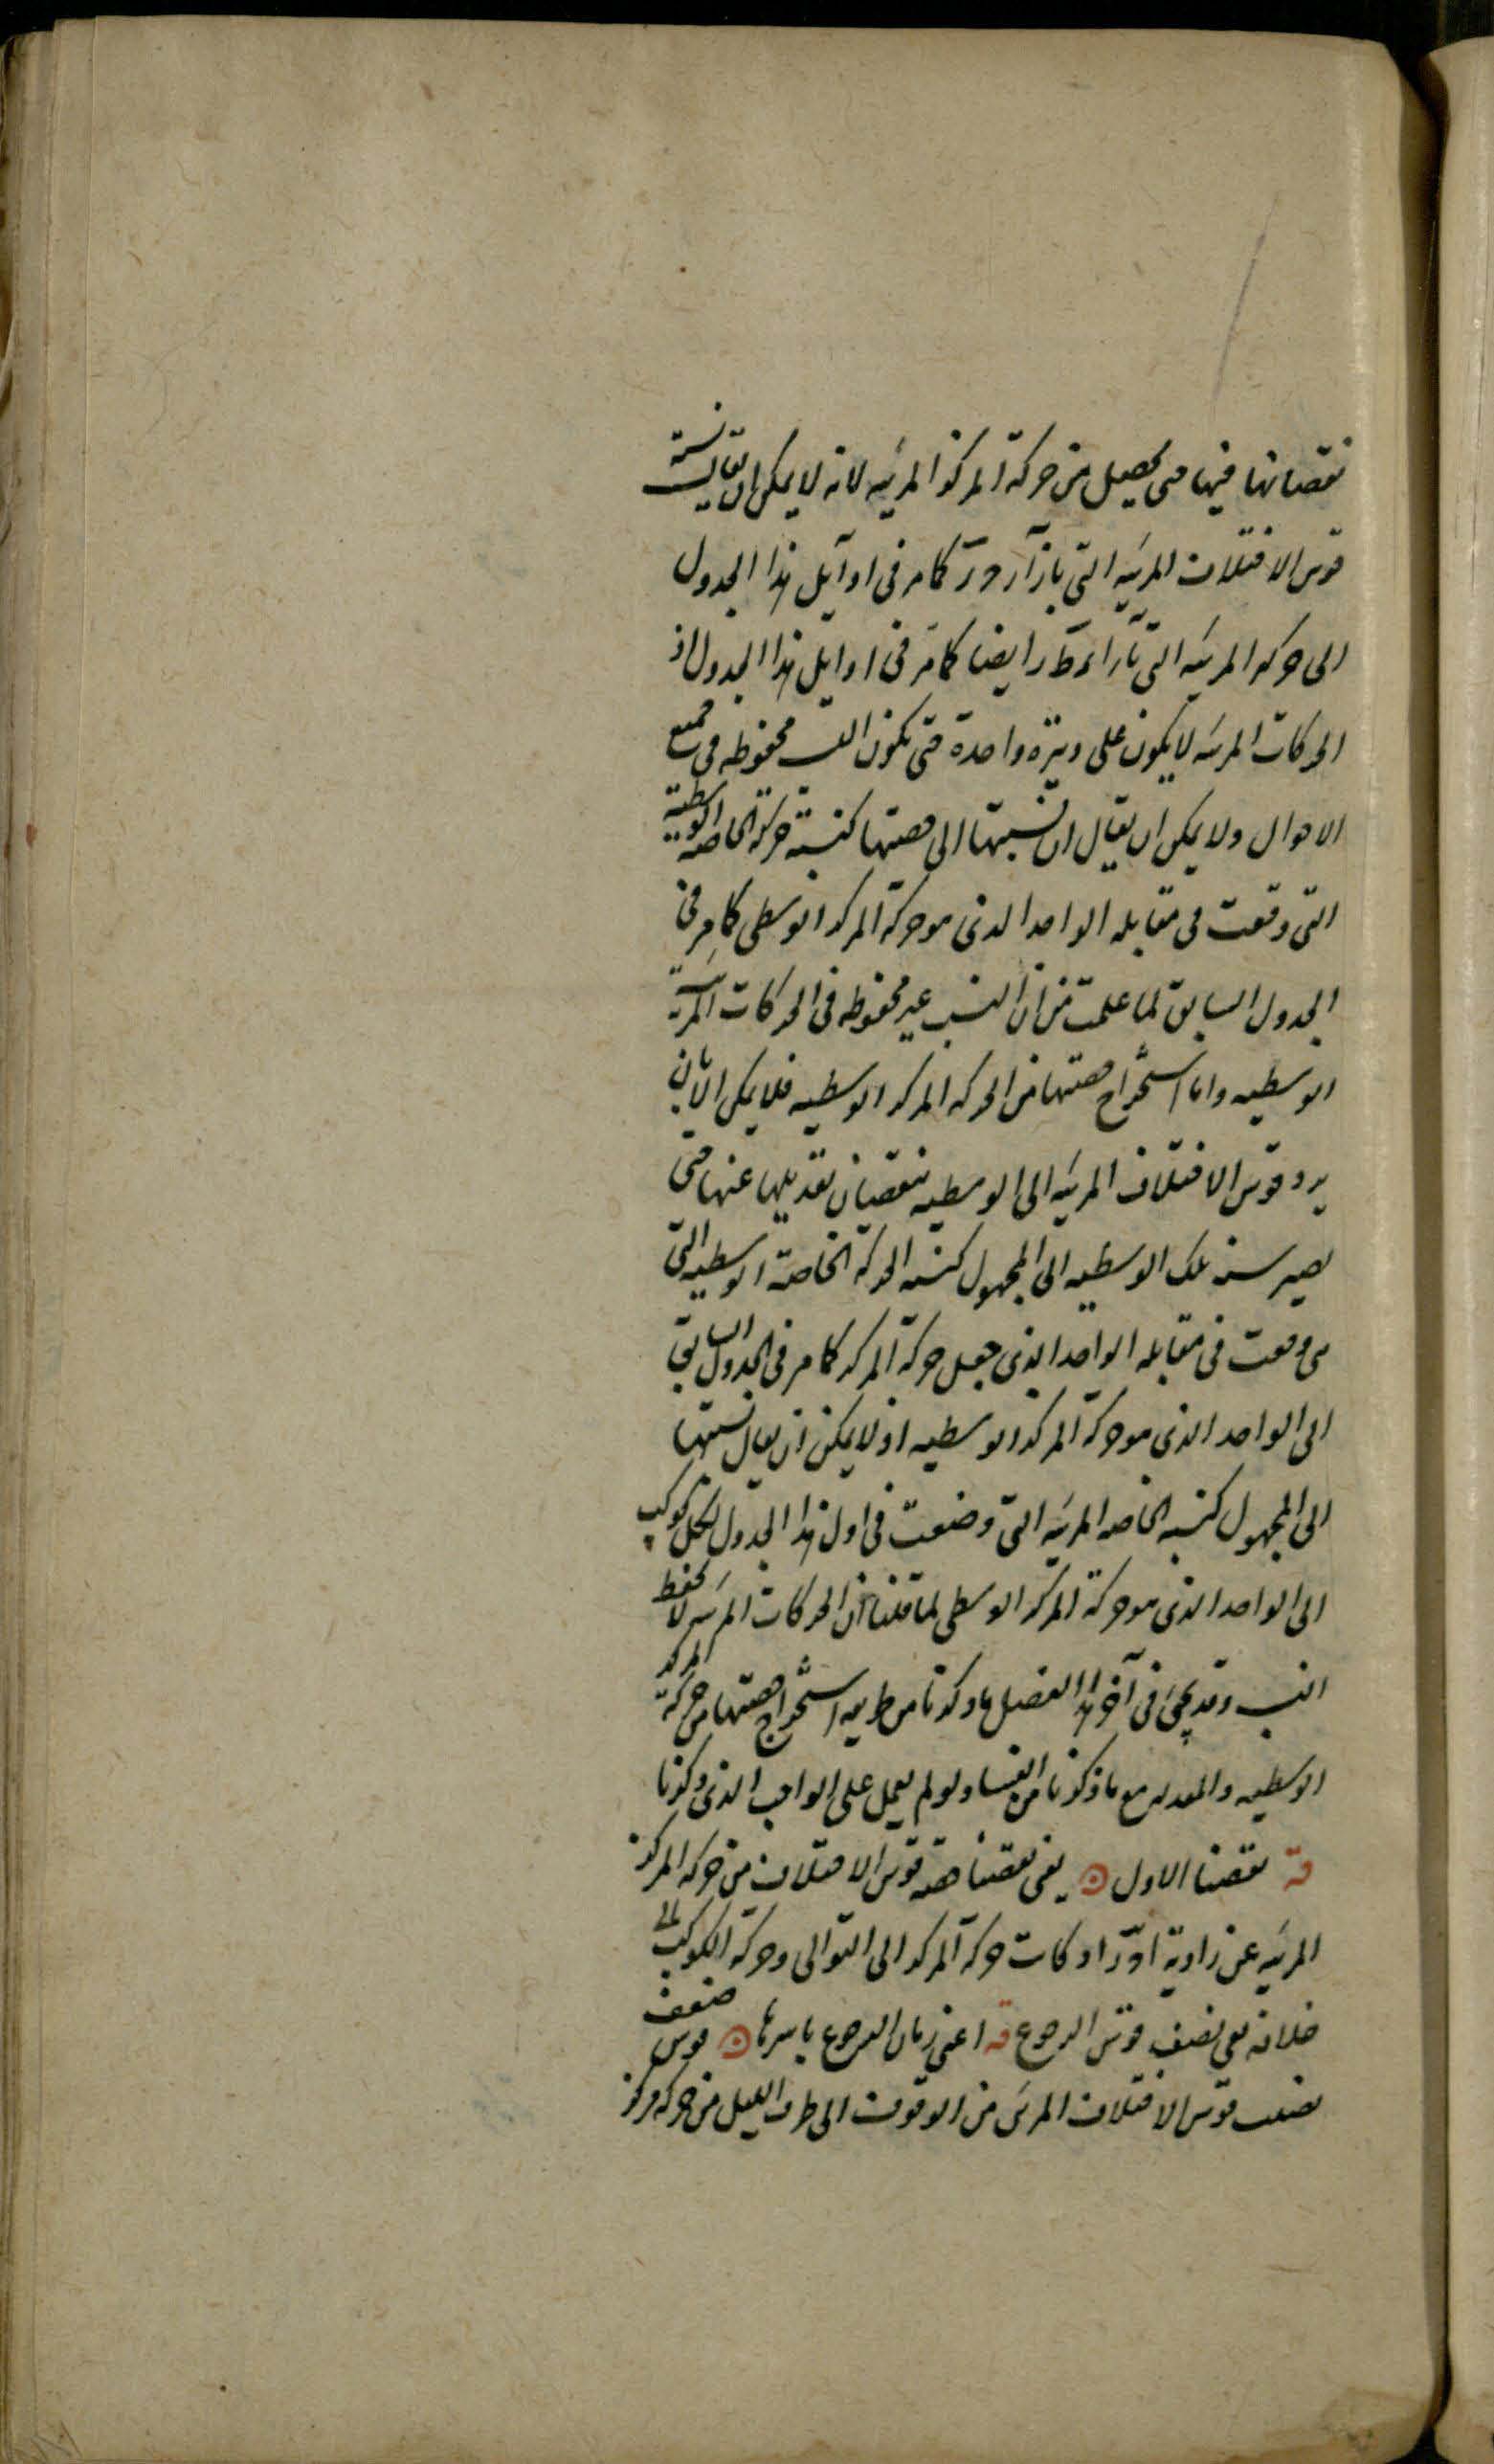 نقصانها فيها حتى يحصل من حركة المركز المرئيه لانه لا يمكن ان يقال نسبة
قوس الاختلاف المرئيه التى بازآ ر كما مر فى اوآيل هذا الجدول
الى حركه المرئيه التى بازاء ط ر ايضا كما مر فى اوايل هذا الجدول اذ
الحركات المرئيه لا يكون على وتيرة واحدة حتى تكون النسب محفوظه فى جميع
الاحوال ولا يمكن ان يقال ان نسبتها الى حصتها كنسبة حركة الخاصه الوسطية
التى وقعت فى مقابله الواحد الذى هو حركة المركز الوسطى كما مر فى
الجدول السابق لما علمت من ان النسب غير محفوظه فى الحركات المرئية
الوسطيه واما استخراج حصتها من الحركه المركز الوسطيه فلا يمكن الا بان
يرد قوس الاختلاف المرئيه الى الوسطيه بنقصان تعديلها عنها حتى
يصير نسبة تلك الوسطيه الى المجهول كنسبه الحركة الخاصة الوسطيه التى
هى وقعت فى مقابله الواحد الذى جعل حركة المركز كما مر فى الجدول السابق
الى الواحد الذى هو حركة المركز الوسطيه اذ لا يمكن ان يقال نسبتها
الى المجهول كنسبه الخاصه المرئيه التى وضعت فى اول هذا الجدول لكل كوكب
الى الواحد الذى هو حركة المركز الوسطى لما قلنا ان الحركات المرئيه لا تحفظ
النسب وقد يجئ فى آخر هذا الفصل ما ذكرنا من طريقه استخراج حصتها من حركة المركز
الوسطيه والمعدله مع ما ذكرنا من الفساد لو لم يعمل على الواجب الذى ذكرنا
قه نقصنا الاول ۞ يعنى نقصنا حصة قوس الاختلاف من حركه المركز
المرئيه عن زاوية اذ كانت حركة المركز الى التوالى وحركة الكوكب الى
خلافه بقى نصف قوس الرجوع قه اعنى زمان الرجوع باسرها ۞ قوس ضعف
نصف قوس الاختلاف المرئى من الوقوف الى طرف الليل من حركه مركز